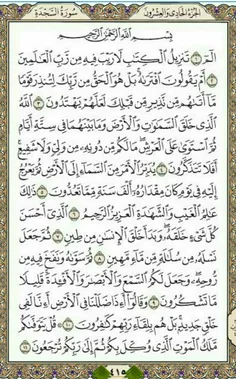 الجزء الحادي والعشرون سورة السجدة
بسم الله الرحمن الرحيم
الٓمٓ ١ تَنزِيلُ ٱلْكِتَٰبِ لَا رَيْبَ فِيهِ مِن رَّبِّ ٱلْعَٰلَمِينَ
٢ أَمْ يَقُولُونَ ٱفْتَرَىٰهُ بَلْ هُوَ ٱلْحَقُّ مِن رَّبِّكَ لِتُنذِرَ قَوْمًا
مَّآ أَتَىٰهُم مِّن نَّذِيرٍ مِّن قَبْلِكَ لَعَلَّهُمْ يَهْتَدُونَ ٣ ٱللَّهُ
ٱلَّذِى خَلَقَ ٱلسَّمَٰوَٰتِ وَٱلْأَرْضَ وَمَا بَيْنَهُمَا فِى سِتَّةِ أَيَّامٍ
ثُمَّ ٱسْتَوَىٰ عَلَى ٱلْعَرْشِ مَا لَكُم مِّن دُونِهِۦ مِن وَلِىٍّ وَلَا شَفِيعٍ
أَفَلَا تَتَذَكَّرُونَ ٤ يُدَبِّرُ ٱلْأَمْرَ مِنَ ٱلسَّمَآءِ إِلَى ٱلْأَرْضِ ثُمَّ يَعْرُجُ
إِلَيْهِ فِى يَوْمٍ كَانَ مِقْدَارُهُۥٓ أَلْفَ سَنَةٍ مِّمَّا تَعُدُّونَ ٥ ذَٰلِكَ
عَٰلِمُ ٱلْغَيْبِ وَٱلشَّهَٰدَةِ ٱلْعَزِيزُ ٱلرَّحِيمُ ٦ ٱلَّذِىٓ أَحْسَنَ
كُلَّ شَىْءٍ خَلَقَهُۥ وَبَدَأَ خَلْقَ ٱلْإِنسَٰنِ مِن طِينٍ ٧ ثُمَّ جَعَلَ
نَسْلَهُۥ مِن سُلَٰلَةٍ مِّن مَّآءٍ مَّهِينٍ ٨ ثُمَّ سَوَّىٰهُ وَنَفَخَ فِيهِ مِن
رُّوحِهِۦ وَجَعَلَ لَكُمُ ٱلسَّمْعَ وَٱلْأَبْصَٰرَ وَٱلْأَفْـِٔدَةَ قَلِيلًا
مَّا تَشْكُرُونَ ٩ وَقَالُوٓا۟ أَءِذَا ضَلَلْنَا فِى ٱلْأَرْضِ أَءِنَّا لَفِى
خَلْقٍ جَدِيدٍۭ بَلْ هُم بِلِقَآءِ رَبِّهِمْ كَٰفِرُونَ ١٠ قُلْ يَتَوَفَّىٰكُم
مَّلَكُ ٱلْمَوْتِ ٱلَّذِى وُكِّلَ بِكُمْ ثُمَّ إِلَىٰ رَبِّكُمْ تُرْجَعُونَ ١١
٤١٥